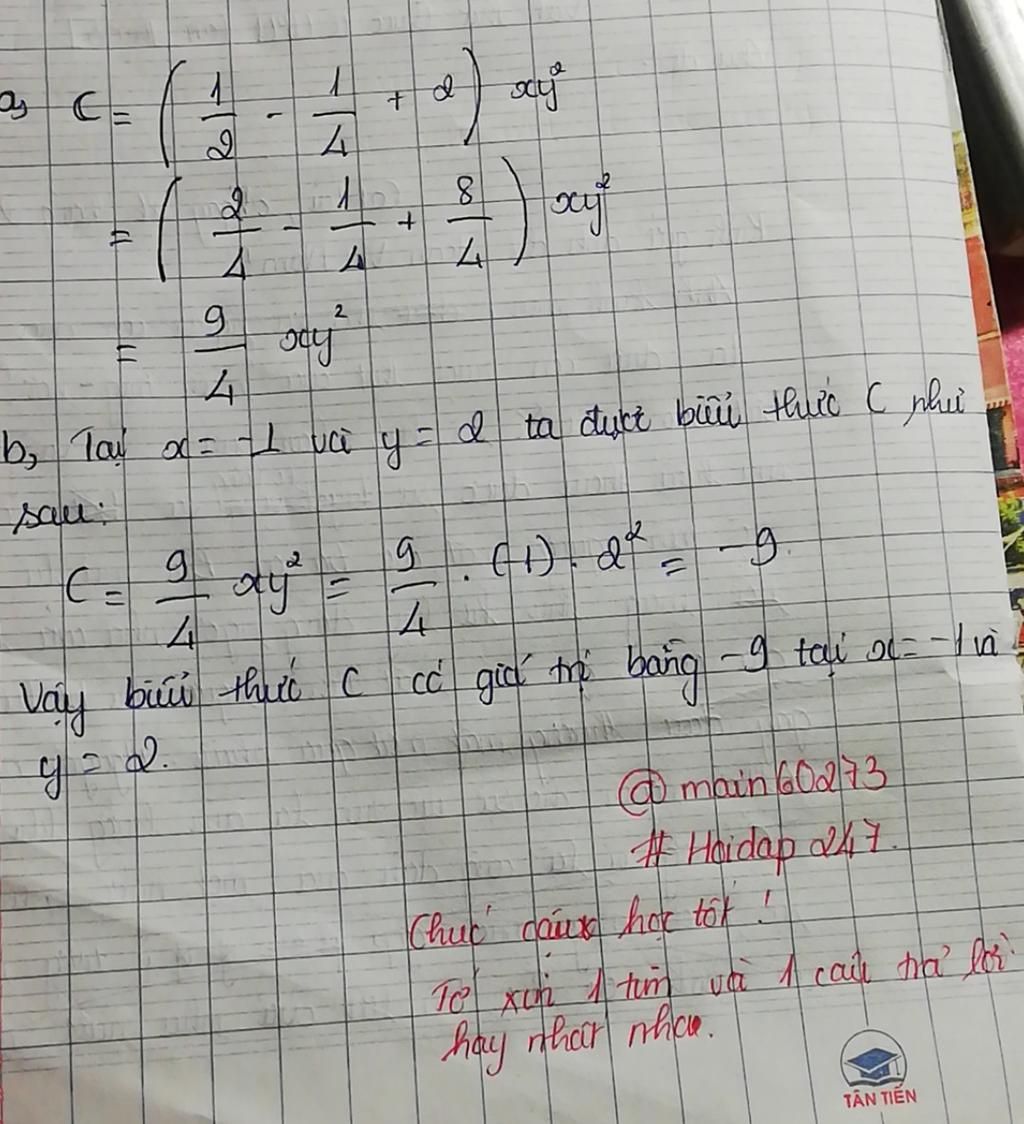 a, C = ( 1/2 - 1/4 + 2 ) xy²
= ( 2/4 - 1/4 + 8/4 ) xy²
= 9/4 xy²
b, Tại x = -1 và y = 2 ta được biểu thức C như
sau:
C = 9/4 xy² = 9/4 . (-1) . 2² = -9
Vậy biểu thức C có giá trị bằng -9 tại x = -1 và
y = 2.
@main60273
# Hoidap 247.
Chúc cậu học tốt !
Tớ xin 1 tim và 1 câu trả lời
hay nhất nha.
TÂN TIẾN